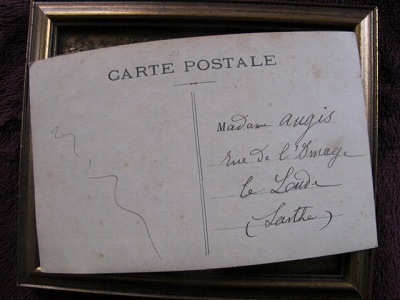 CARTE POSTALE
Madame Augis
rue de l'Image
le Lude
(Sarthe)